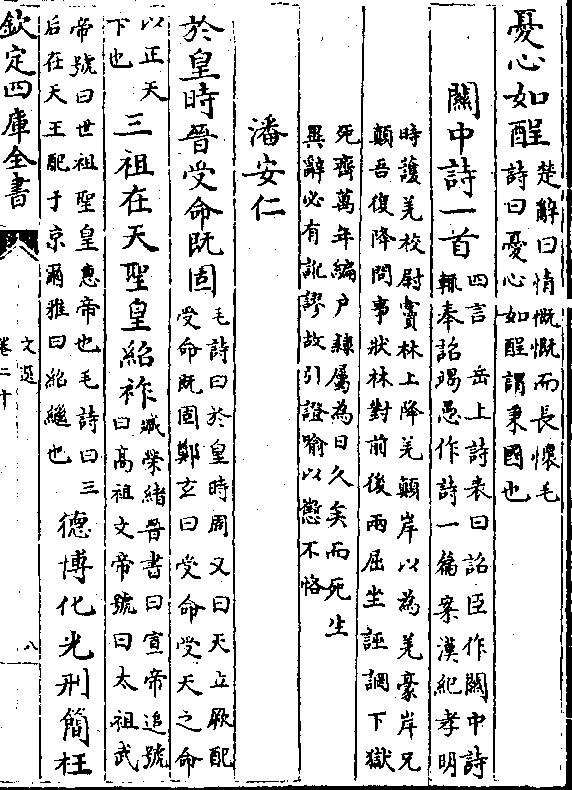 憂心如酲楚辭曰情慨慨而長懷毛
詩曰憂心如酲謂秉國也
關中詩一首四言岳上詩表曰詔臣作關中詩
輒奉詔竭愚作詩一篇案漢紀孝明
時護羌校尉竇林上降羌顛岸以為羌豪岸兄
顛吾復降問事狀林對前後兩屈坐誣調下獄
死齊萬年編户隸屬為日久矣而死生
異辭必有訛謬故引證喻以懲不恪
潘安仁
於皇時晉受命既固毛詩曰於皇時周又曰天立厥配
受命既固鄭玄曰受命受天之命
以正天
下也三祖在天聖皇紹祚臧榮緒晉書曰宣帝追號
曰高祖文帝號曰太祖武
帝號曰世祖聖皇惠帝也毛詩曰三
后在天王配于京爾雅曰紹繼也德博化光刑簡枉
欽定四庫全書
文選
卷二十
八